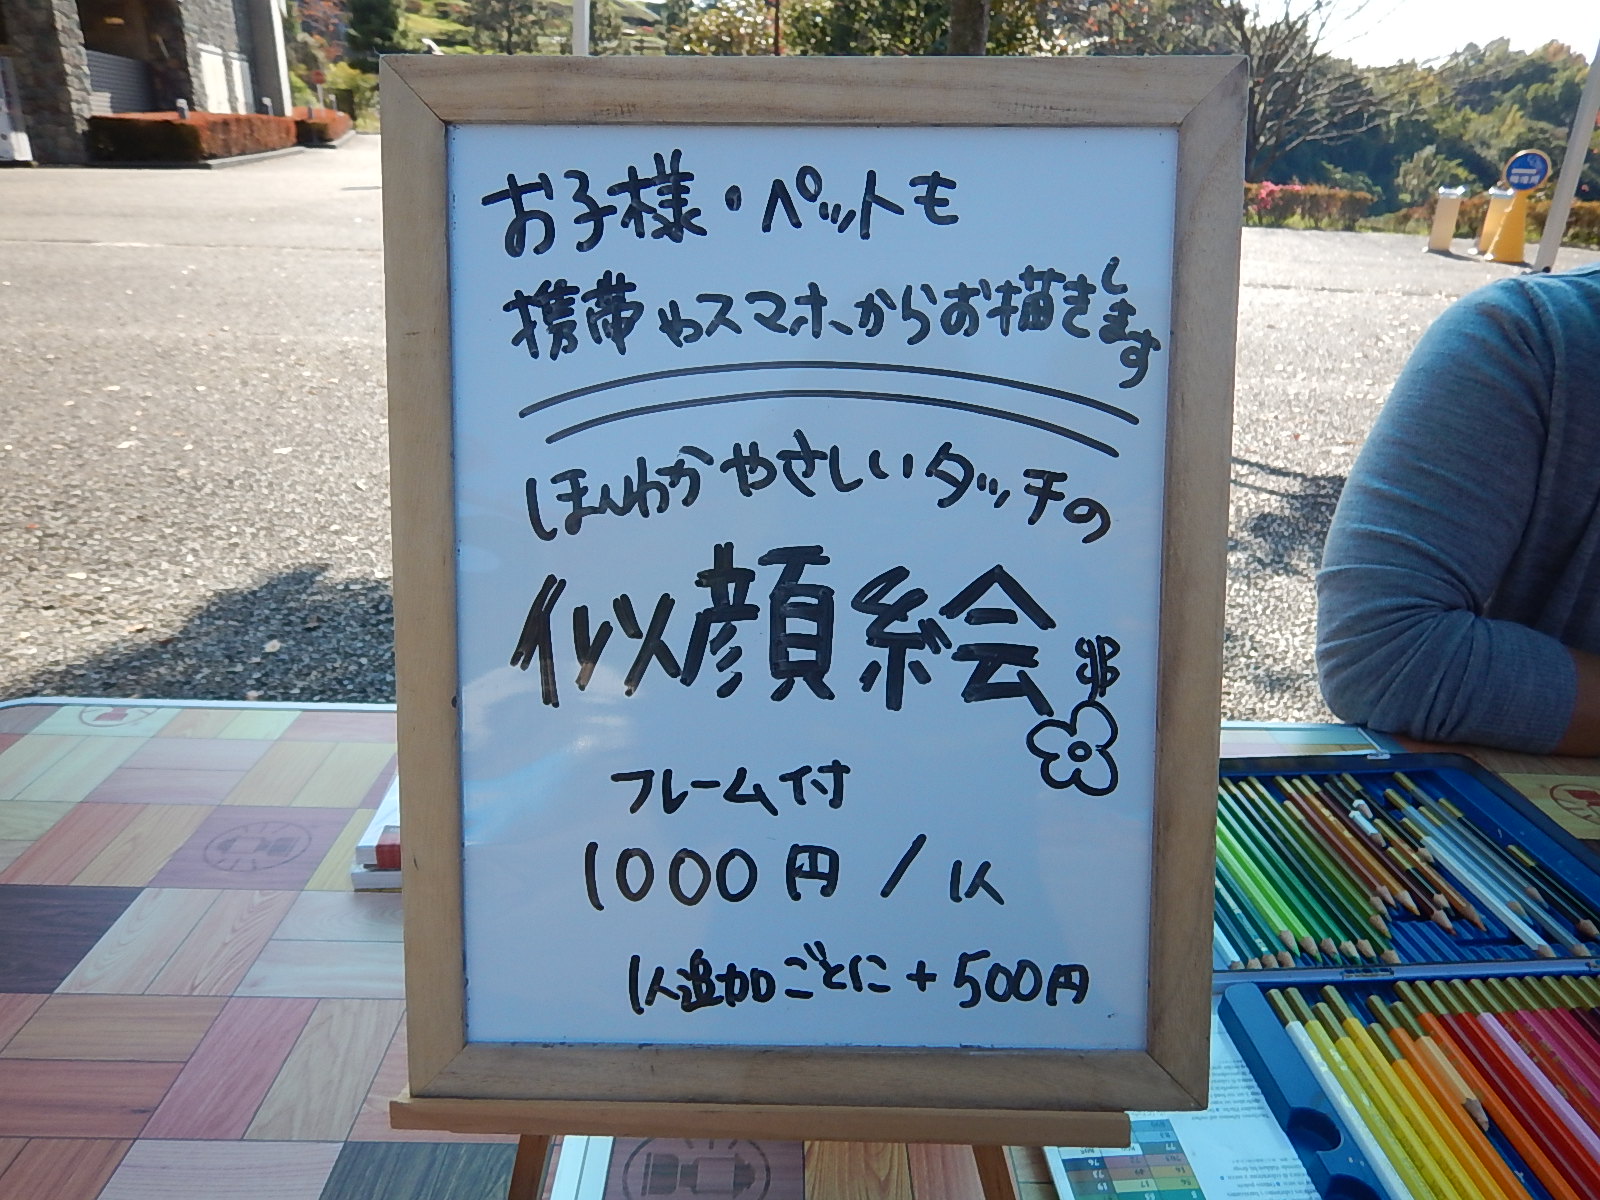 お子様・ペットも
携帯やスマホからお描きします
ほんわかやさしいタッチの
似顔絵
フレーム付
1000円/1人
1人追加ごとに+500円